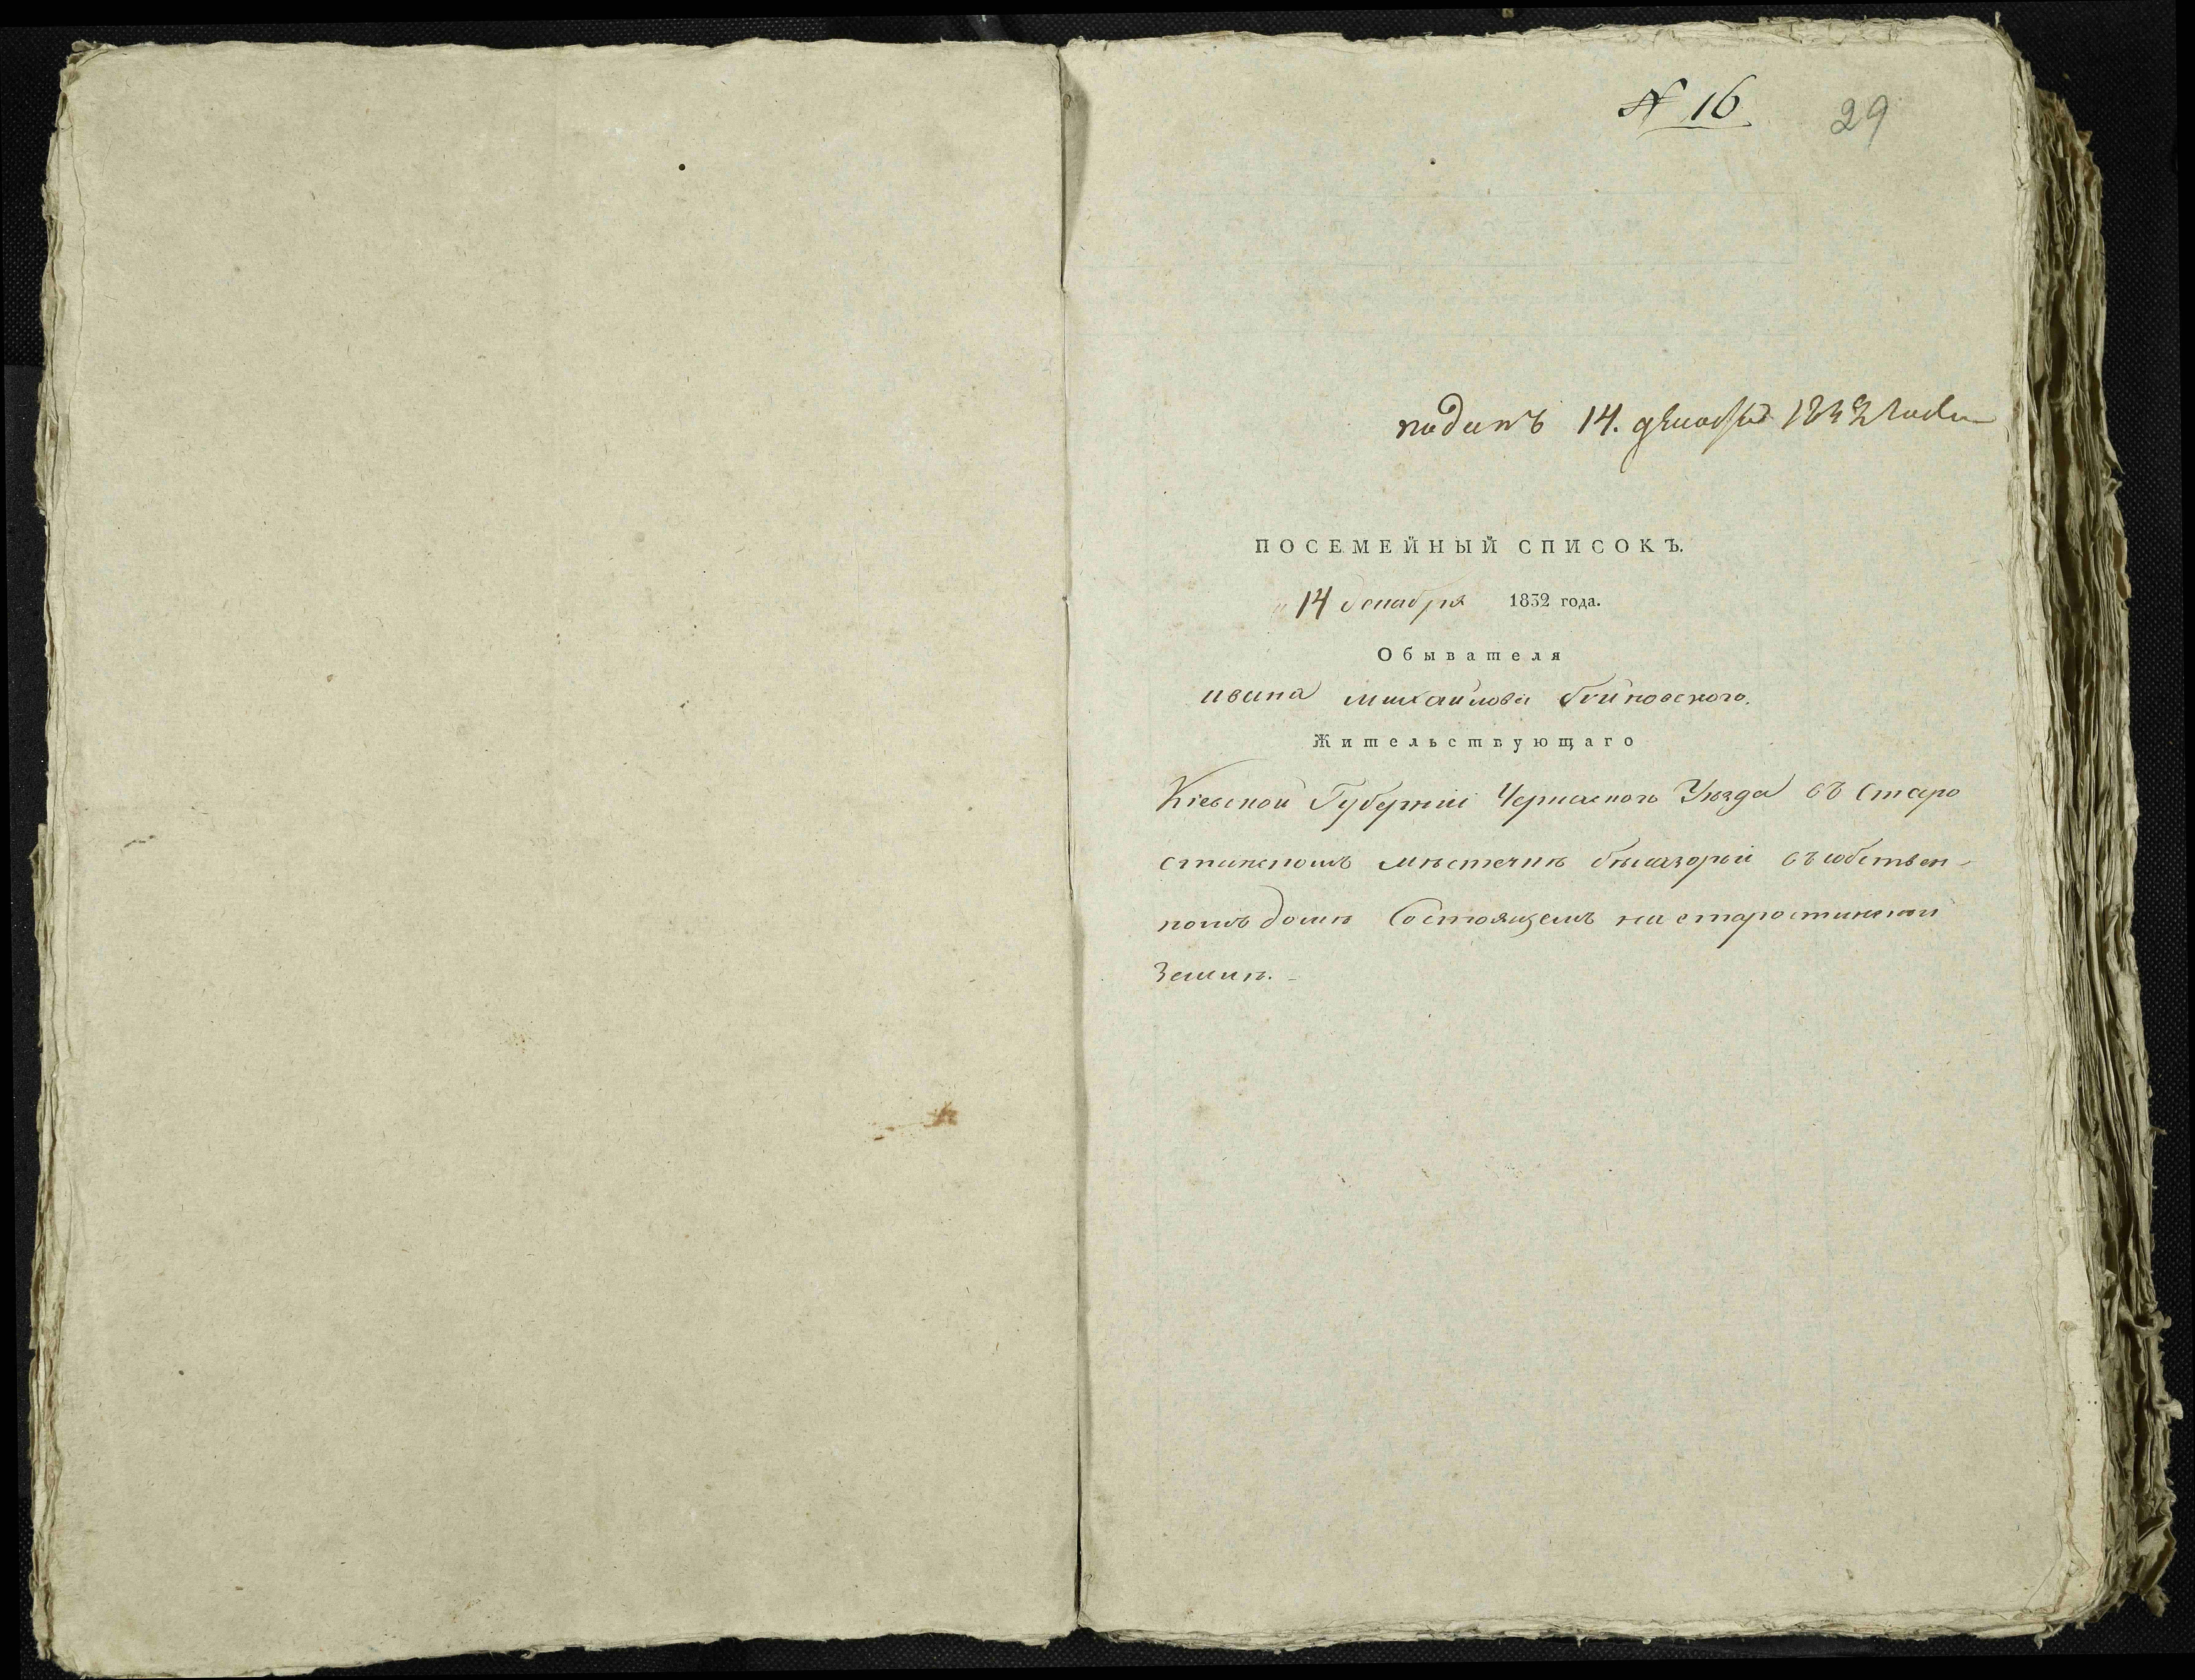 № 16
29
поданъ 14. декабря 1832 года
ПОСЕМЕЙНЫЙ СПИСОКЪ.
14 декабря 1832 года.
Обывателя
ивана михайлова бойковского.
Жительствующаго
Кіевской Губерніи Черкаского Уѣзда въ Старо
стинскомъ мѣстечкѣ бѣлазорьи въ собствен-
номъ домѣ Состоящемъ на старостинской
Землѣ.